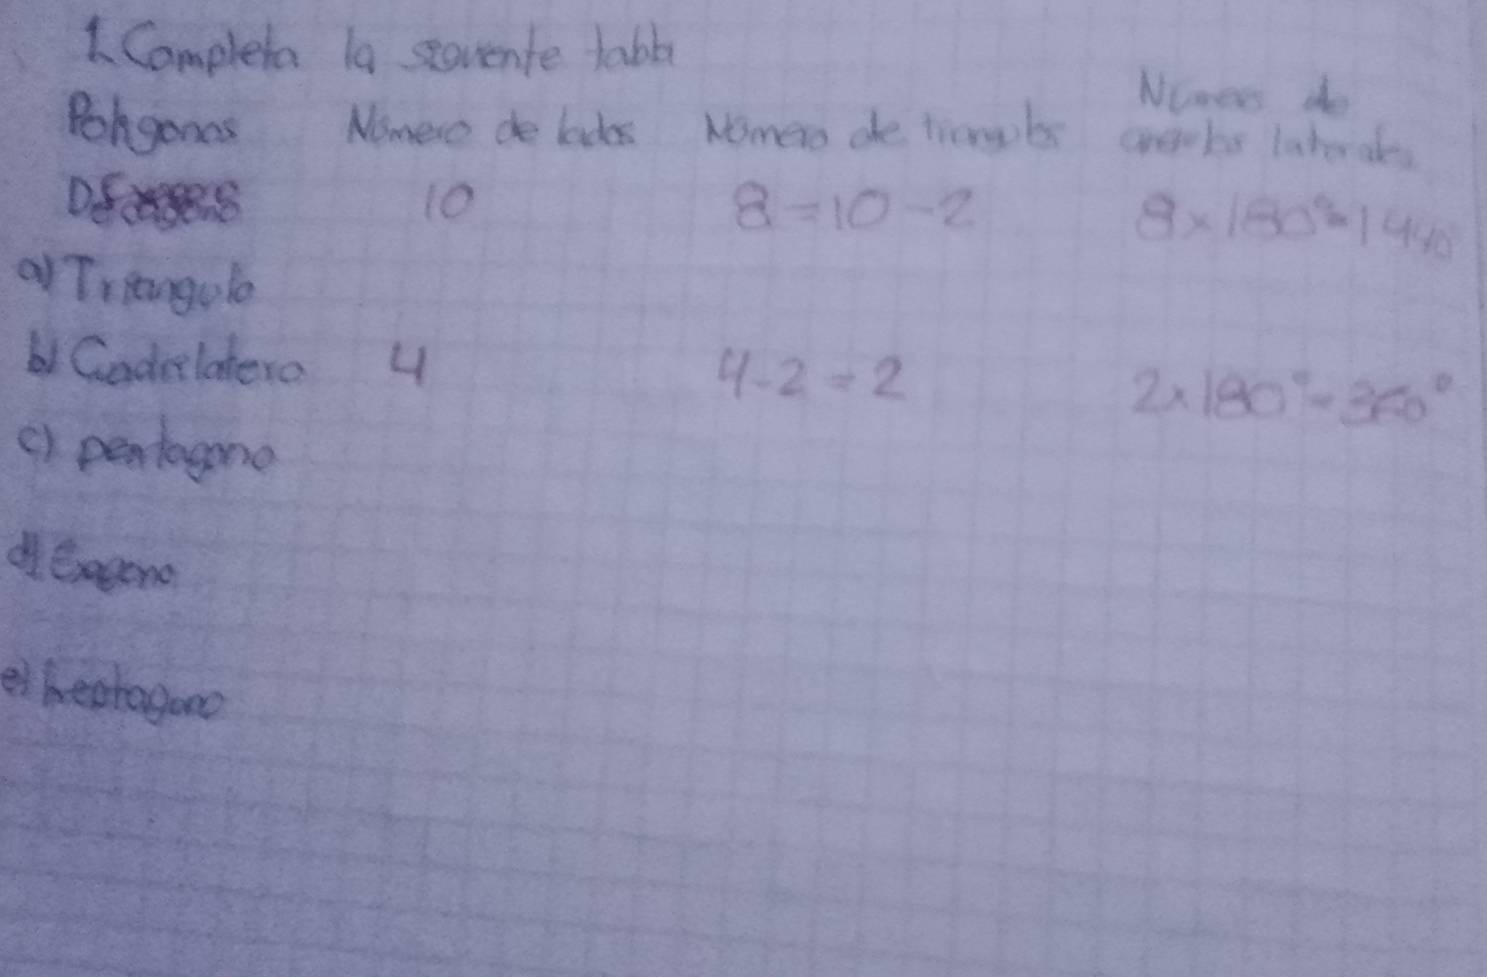 1. Completa la siguiente tabla
Poligonos Número de lados Número de triangulos Número de laterales
10 8=10-2 8x180°=1440
a) Triangulo
b) Cadrilatero 4 4-2=2 2x180°=360°
c) pentagono
d) Exagono
e) heptagono